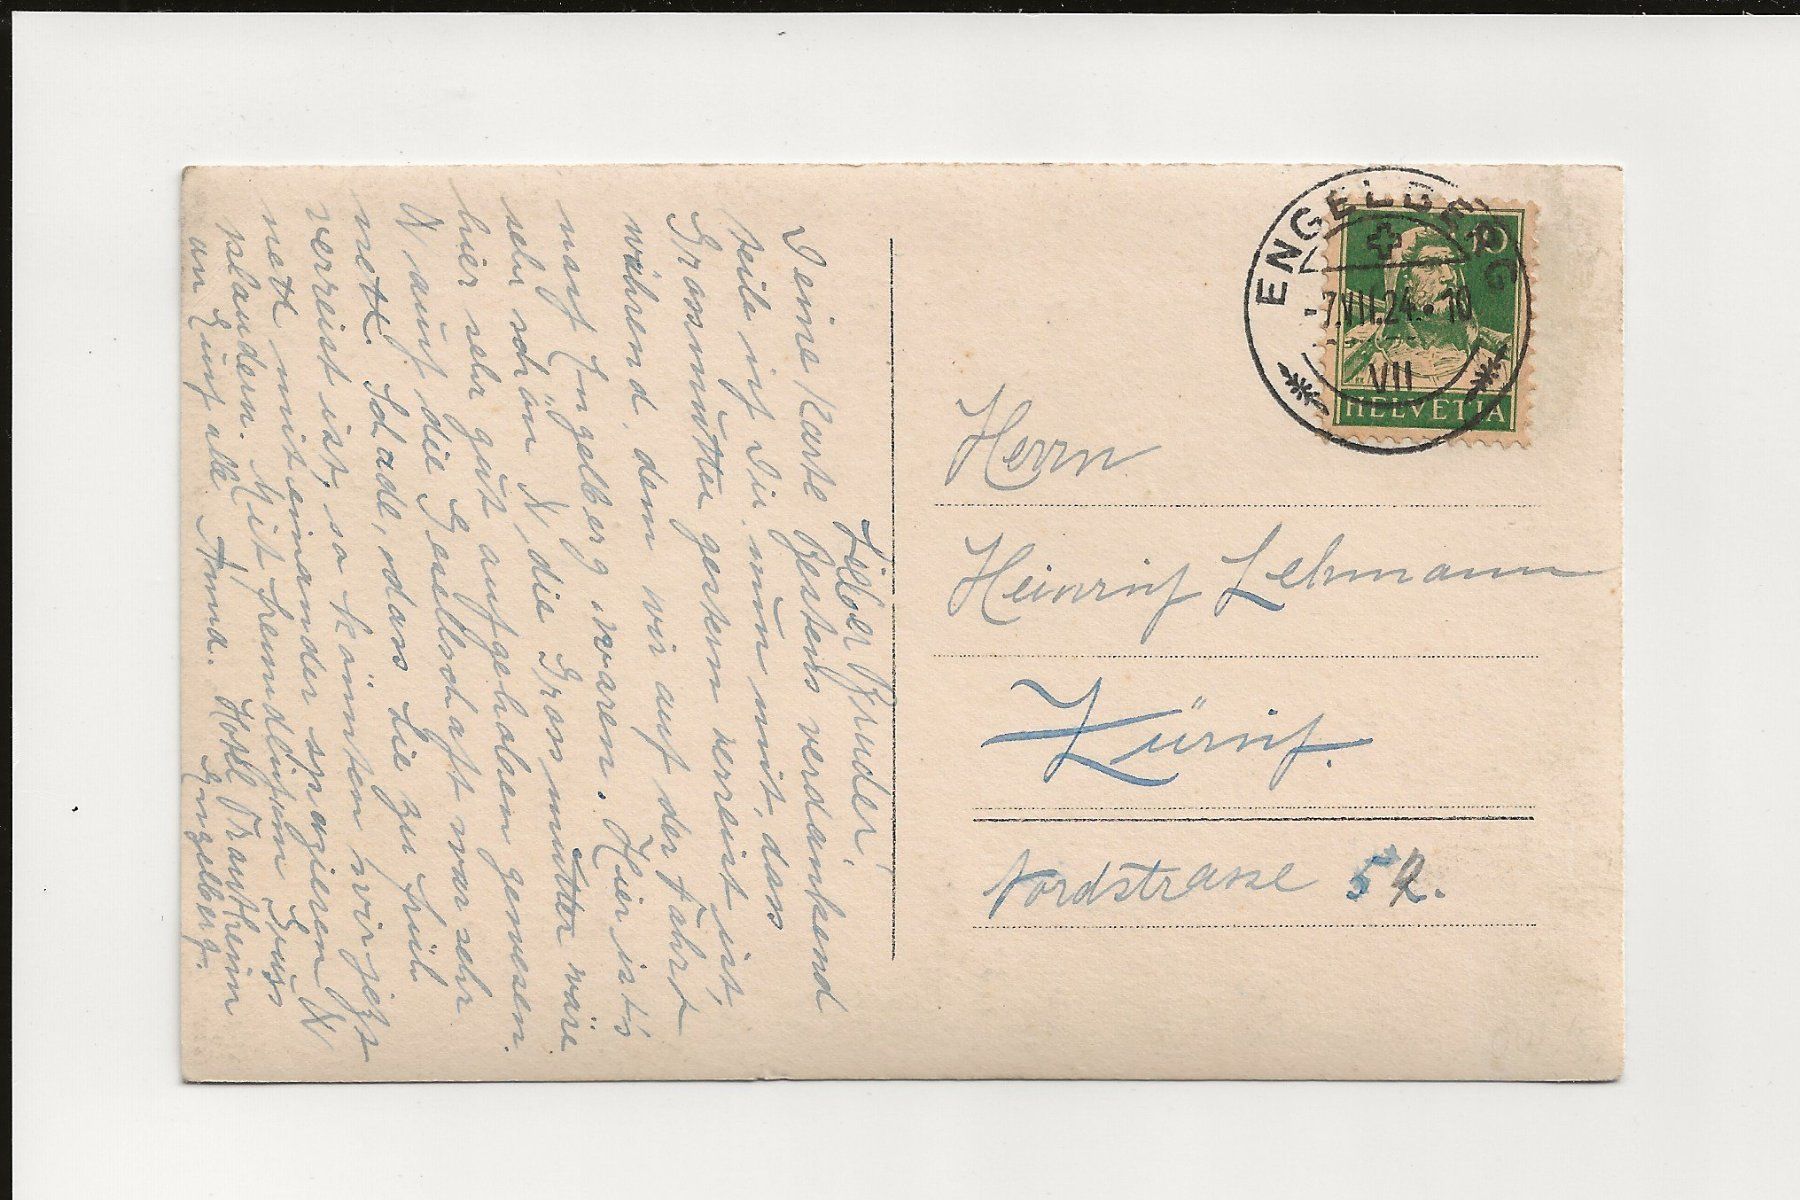 Lieber Bruder!
Deine Karte bestens verdankend
teile ich Dir nun mit, dass
Grossmutter gestern verreist ist,
während dem wir auf der Fahrt
nach Engelberg waren. Hier ist's
sehr schön &, die Grossmutter wäre
hier sehr gut aufgehoben gewesen.
& auch die Gesellschaft war sehr
nett. Schade, dass sie zu früh
verreist ist, so könnten wir jetzt
nett miteinander spazieren &
plaudern. Mit freundlichem Gruss
an Euch alle Anna. Hotel Trautheim
Engelberg.
ENGELBERG
-7.VII.24.• 10
VII
HELVETIA
Herrn
Heinrich Lehmann
Zürich.
Nordstrasse 52.